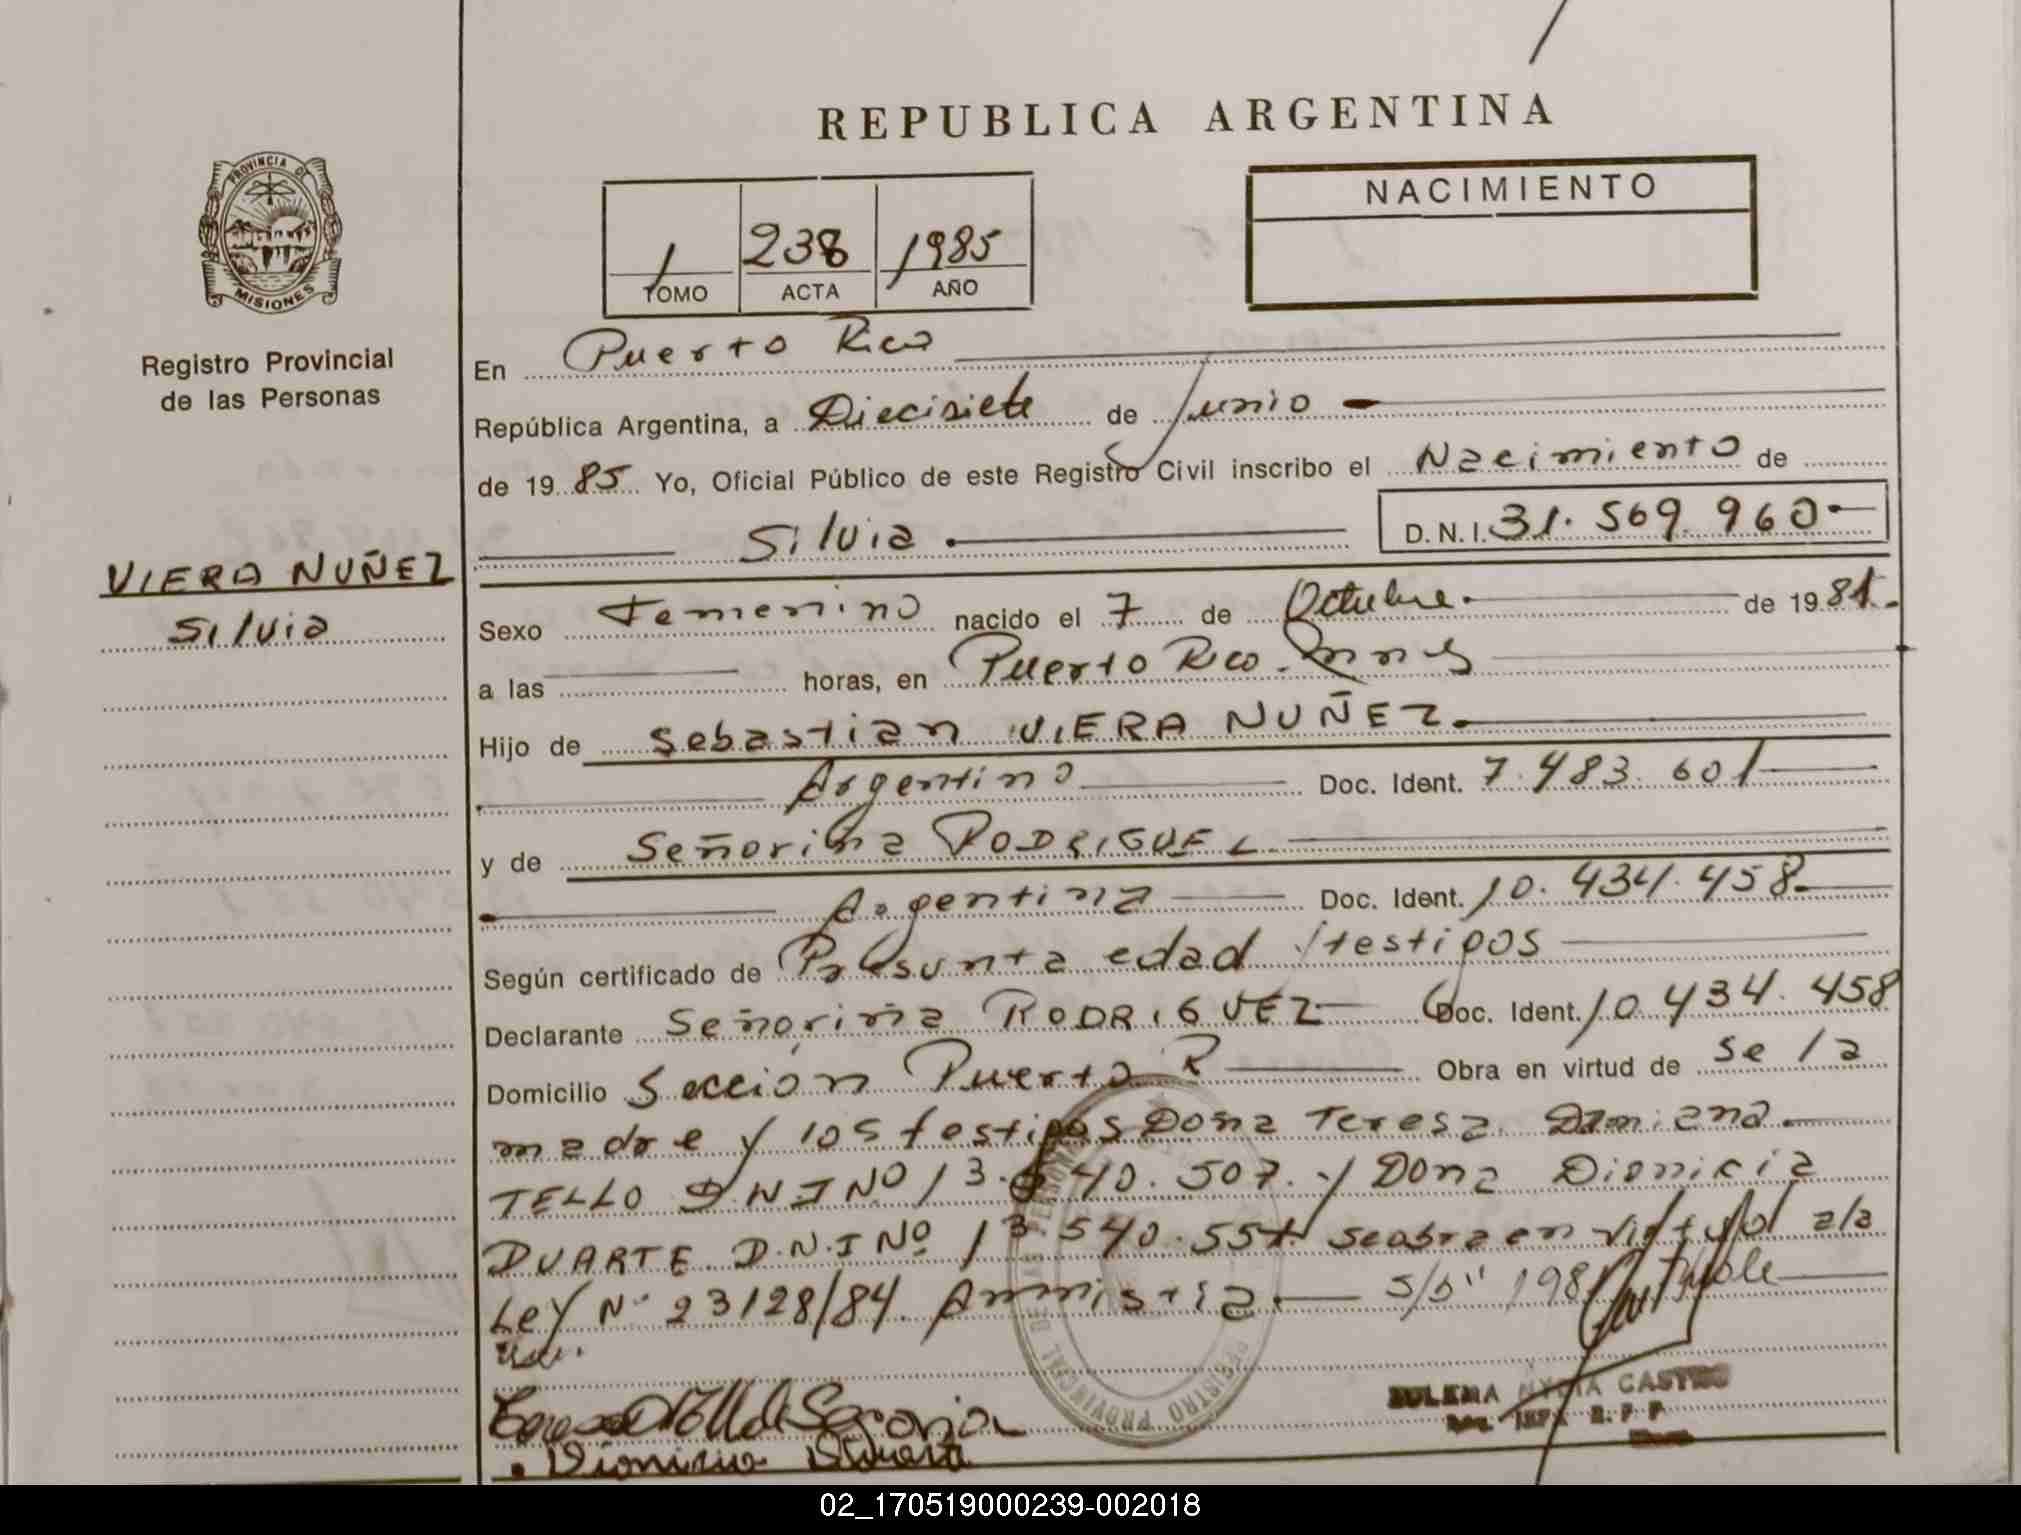 REPUBLICA ARGENTINA
PROVINCIA DE
MISIONES
Registro Provincial
de las Personas
1 238 1985
TOMO ACTA AÑO
NACIMIENTO
En Puerto Rico
República Argentina, a Diecisiete de Junio
de 1985 Yo, Oficial Público de este Registro Civil inscribo el Nacimiento de
Silvia D.N.I. 31.569.960
VIERA NUÑEZ
Silvia
Sexo Femenino nacido el 7 de Octubre de 1981.
a las horas, en Puerto Rico. Mnes
Hijo de Sebastian VIERA NUÑEZ
Argentino Doc. Ident. 7.483.601
y de Señoriña RODRIGUEZ
Argentina Doc. Ident. 10.434.458
Según certificado de Presunta edad y testigos
Declarante Señoriña RODRIGUEZ Doc. Ident. 10.434.458
Domicilio Sección Puerto R Obra en virtud de se la
madre y los testigos Doña Teresa Damiana
TELLO D.N.I Nº 13. 40.507. y Dona Dionicia
DUARTE D.N.I Nº 13.540.557 se obra en virtud a la
Ley Nº 23128/84. Amnistia. S/b" 1981 Vale
REGISTRO PROVINCIAL DE LAS PERSONAS
Dionicia Duarte
ZULEMA CASTRO
02_170519000239-002018